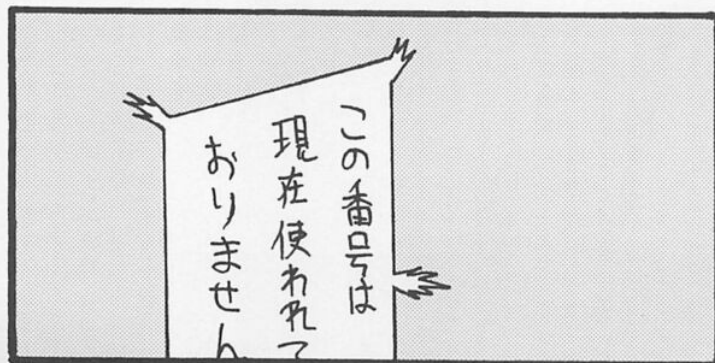 この番号は
現在使われて
おりません